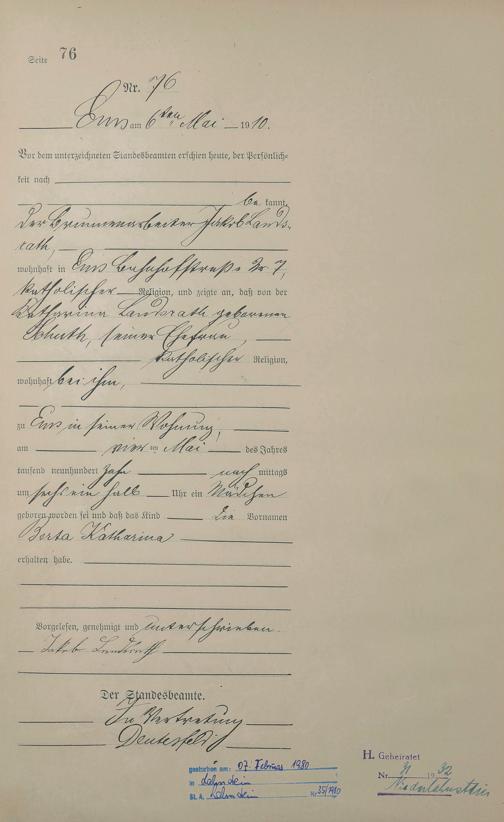 Seite 76
Nr. 76
Ems am 6ten Mai 1910.
Vor dem unterzeichneten Standesbeamten erschien heute, der Persönlich-
keit nach
be kannt,
der Brunnenarbeiter Jakob Lands-
rath,
wohnhaft in Ems Bahnhofstraße Nr 7,
katholischer Religion, und zeigte an, daß von der
Katharina Landsrath geborenen
seiner Ehefrau,
katholischer Religion,
wohnhaft bei ihm,
zu Ems in seiner Wohnung,
am vier ten Mai des Jahres
tausend neunhundert zehn nach mittags
um sechs ein halb Uhr ein Mädchen
geboren worden sei und daß das Kind die Vornamen
Berta Katharina
erhalten habe.
Vorgelesen, genehmigt und unterschrieben.
Jakob Landsrath
Der Standesbeamte.
In Vertretung
gestorben am: 07. Februar 1980
in Lahnstein
St. A. Lahnstein Nr 35/1980
H. Geheiratet
Nr. 1932
Niederlahnstein